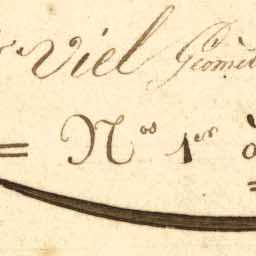 Viel Géomèt
= Nos 1er à